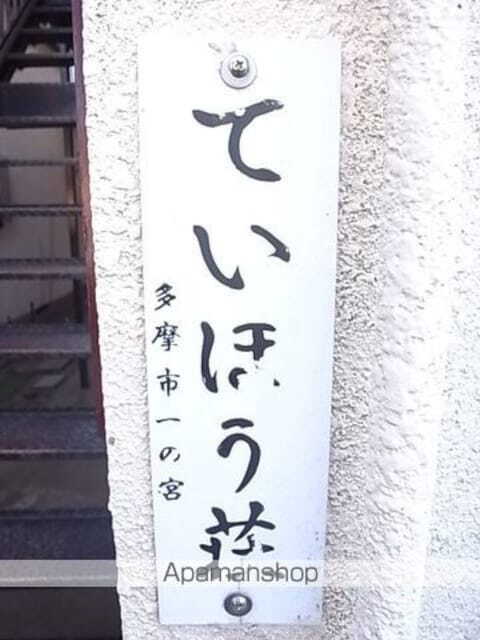 ていほう荘
多摩市一の宮
Apamanshop